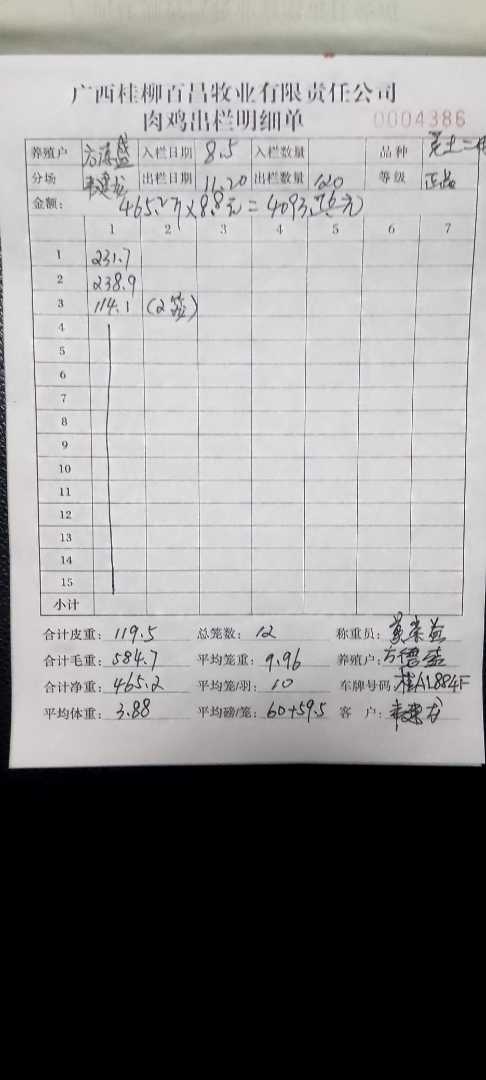 广西桂柳百昌牧业有限责任公司
肉鸡出栏明细单 0004386
养殖户 入栏日期 8.5 入栏数量 品种
分场 出栏日期 11.20 出栏数量 120 等级 正品
金额: 465.2斤×8.8元=4093.76元
1 2 3 4 5 6 7
1 231.7
2 238.9
3 114.1 (2笼)
4
5
6
7
8
9
10
11
12
13
14
15
小计
合计皮重: 119.5 总笼数: 12 称重员:
合计毛重: 584.7 平均笼重: 9.96 养殖户:
合计净重: 465.2 平均笼/羽: 10 车牌号码: 桂A1884F
平均体重: 3.88 平均磅/笼: 60+59.5 客户: